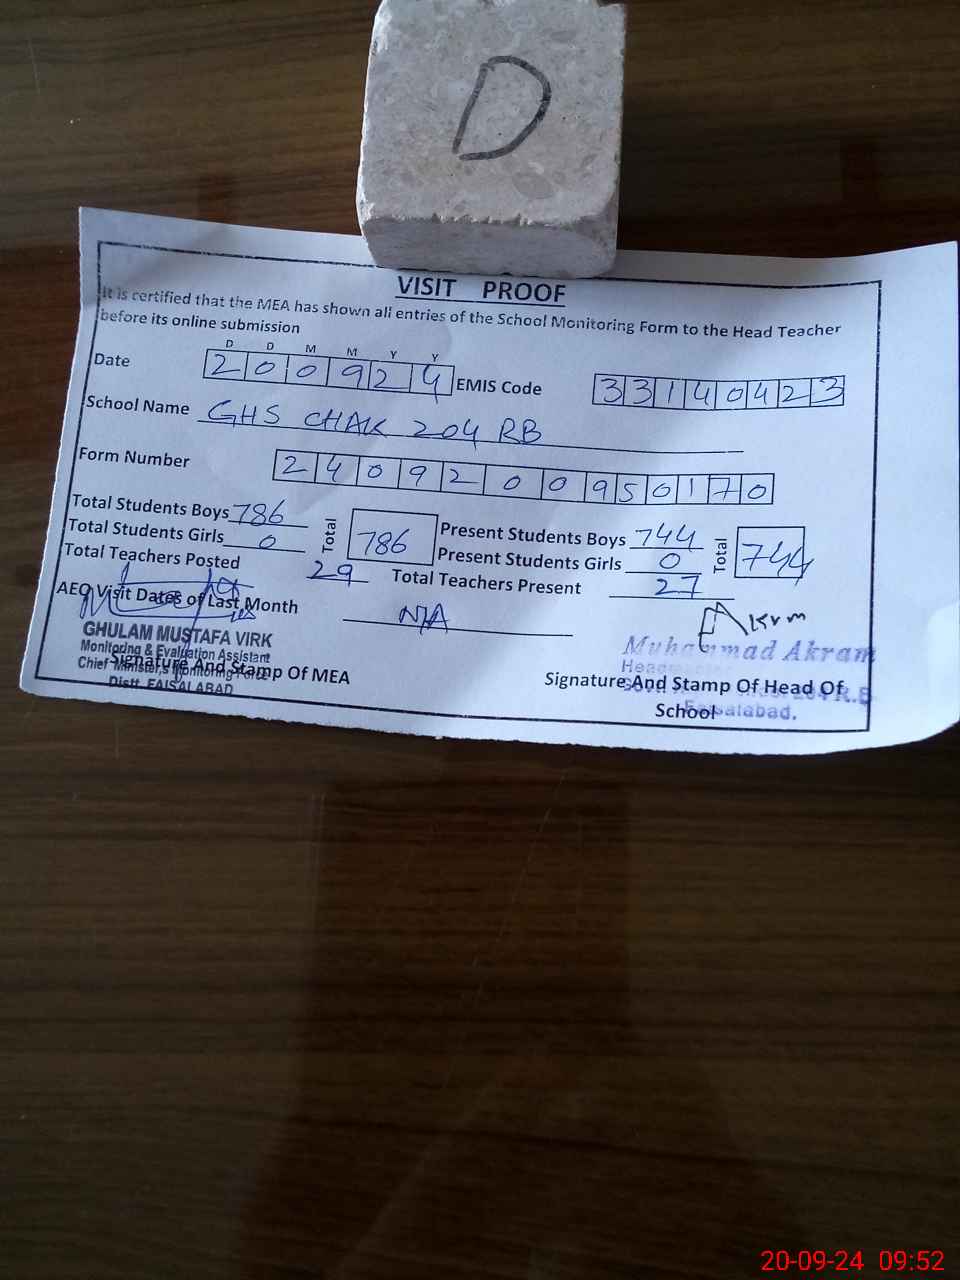 D
VISIT PROOF
It is certified that the MEA has shown all entries of the School Monitoring Form to the Head Teacher
before its online submission
D D M M Y Y
Date 2 0 0 9 2 4 EMIS Code 3 3 1 4 0 4 2 3
School Name GHS CHAK 204 RB
Form Number 2 4 0 9 2 0 0 9 5 0 1 7 0
Total Students Boys 786 Total 786 Present Students Boys 744 Total 744
Total Students Girls 0 Present Students Girls 0
Total Teachers Posted 29 Total Teachers Present 27
AEO Visit Dates of Last Month N/A
Akrm
GHULAM MUSTAFA VIRK
Monitoring & Evaluation Assistant
Chief Minister,s Monitoring Force
Distt. FAISALABAD
Signature And Stamp Of MEA
Muhammad Akram
204 R.B
Faisalabad.
Signature And Stamp Of Head Of
School
20-09-24 09:52